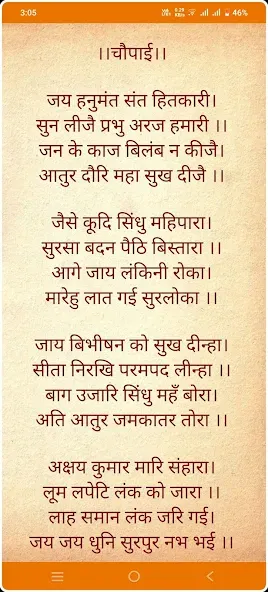 3:05 46%
।।चौपाई।।
जय हनुमंत संत हितकारी।
सुन लीजै प्रभु अरज हमारी ।।
जन के काज बिलंब न कीजै।
आतुर दौरि महा सुख दीजै ।।
जैसे कूदि सिंधु महिपारा।
सुरसा बदन पैठि बिस्तारा ।।
आगे जाय लंकिनी रोका।
मारेहु लात गई सुरलोका ।।
जाय बिभीषन को सुख दीन्हा।
सीता निरखि परमपद लीन्हा ।।
बाग उजारि सिंधु महँ बोरा।
अति आतुर जमकातर तोरा ।।
अक्षय कुमार मारि संहारा।
लूम लपेटि लंक को जारा ।।
लाह समान लंक जरि गई।
जय जय धुनि सुरपुर नभ भई ।।